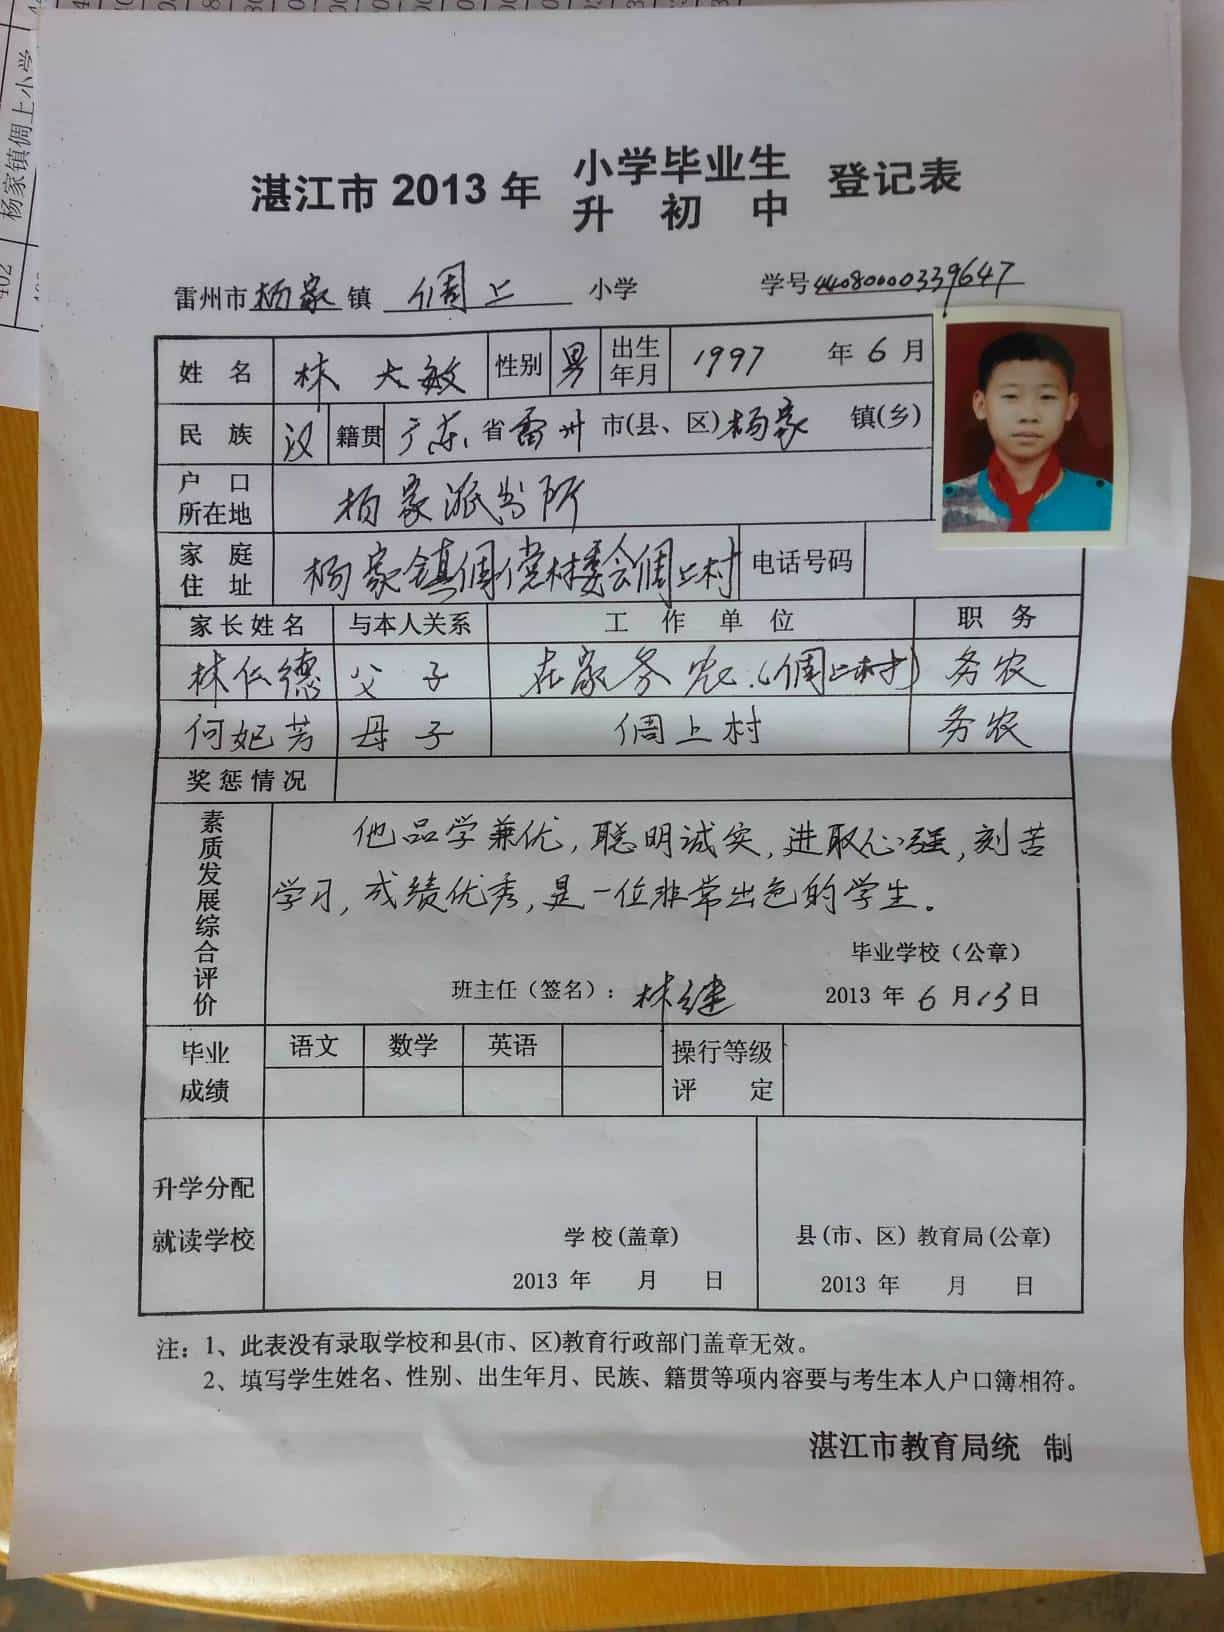 杨家镇倜上小学
402
湛江市 2013 年 小学毕业生 登记表
升 初 中
雷州市杨家镇 倜上 小学 学号4408000339647
姓 名 林大敏 性别 男 出生年月 1997 年 6 月
民 族 汉 籍贯 广东省雷州市(县、区)杨家 镇(乡)
户 口所在地 杨家派出所
家 庭住 址 杨家镇倜党村委会倜上村 电话号码
家长姓名 与本人关系 工 作 单 位 职 务
林仁德 父子 在家务农.(倜上村) 务农
何妃芳 母子 倜上村 务农
奖惩情况
素质发展综合评价
他品学兼优,聪明诚实,进取心强,刻苦
学习,成绩优秀,是一位非常出色的学生。
毕业学校（公章）
班主任（签名）: 林继 2013 年 6 月 13 日
毕业成绩 语文 数学 英语 操行等级评 定
升学分配
就读学校
学校(盖章) 县(市、区) 教育局(公章)
2013 年 月 日 2013 年 月 日
注: 1、此表没有录取学校和县(市、区)教育行政部门盖章无效。
2、填写学生姓名、性别、出生年月、民族、籍贯等项内容要与考生本人户口簿相符。
湛江市教育局统 制